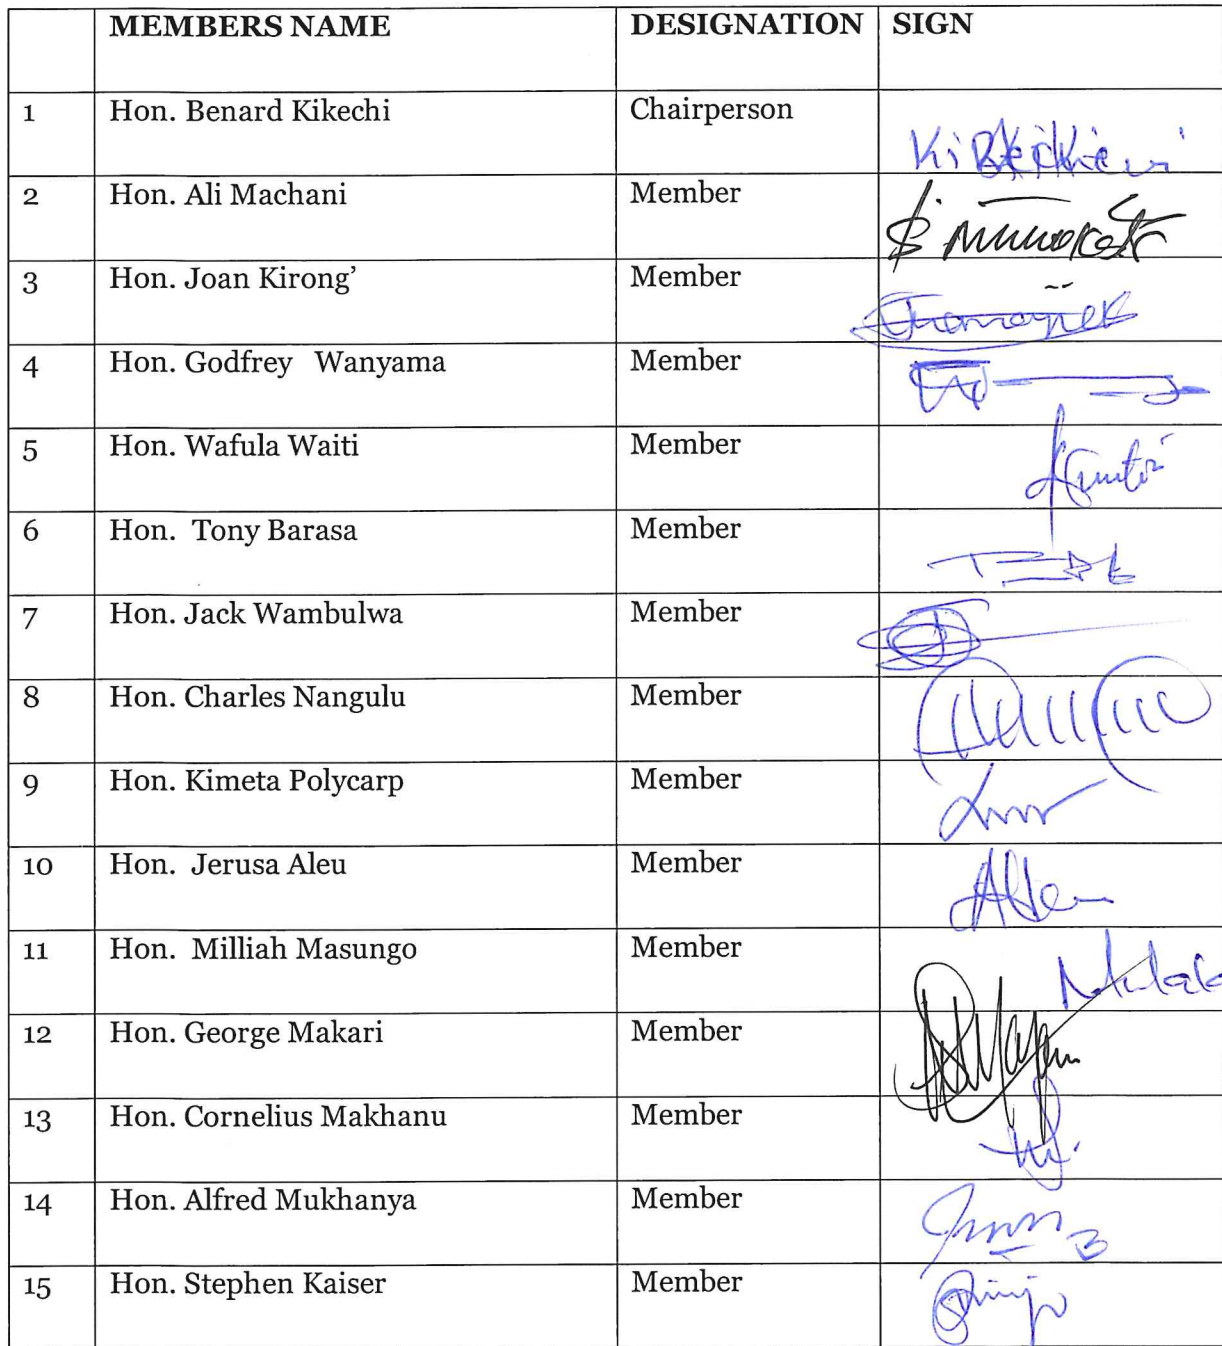 MEMBERS NAME DESIGNATION SIGN
1 Hon. Benard Kikechi Chairperson
2 Hon. Ali Machani Member
3 Hon. Joan Kirong’ Member
4 Hon. Godfrey Wanyama Member
5 Hon. Wafula Waiti Member
6 Hon. Tony Barasa Member
7 Hon. Jack Wambulwa Member
8 Hon. Charles Nangulu Member
9 Hon. Kimeta Polycarp Member
10 Hon. Jerusa Aleu Member
11 Hon. Milliah Masungo Member
12 Hon. George Makari Member
13 Hon. Cornelius Makhanu Member
14 Hon. Alfred Mukhanya Member
15 Hon. Stephen Kaiser Member